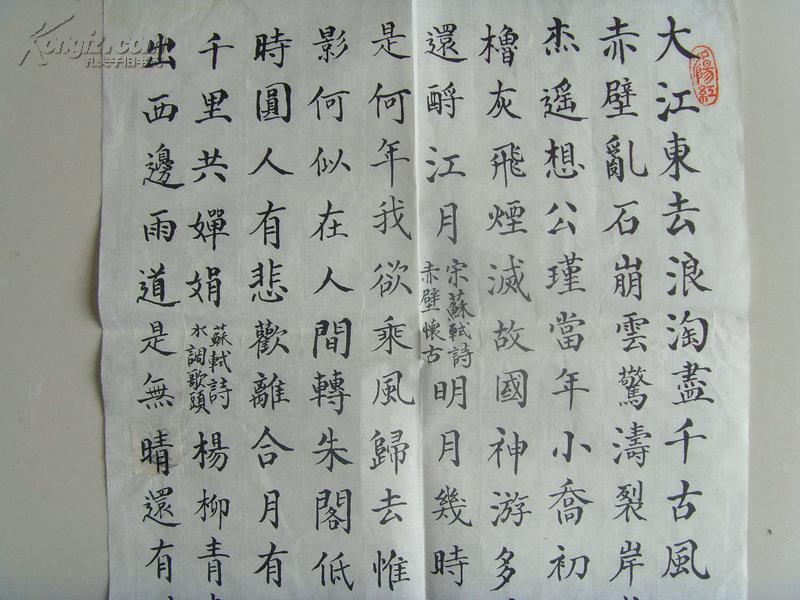 大江東去浪淘盡千古風
赤壁亂石崩雲驚濤裂岸
杰遙想公瑾當年小喬初
櫓灰飛煙滅故國神游多
還酹江月
宋蘇軾詩
赤壁懷古
明月幾時
是何年我欲乘風歸去惟
影何似在人間轉朱閣低
時圓人有悲歡離合月有
千里共嬋娟
蘇軾詩
水調歌頭
楊柳青
出西邊雨道是無晴還有
陽紅